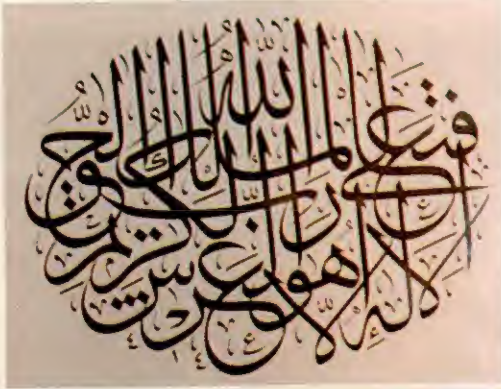 فتعلى الله الملك الحق لا إله إلا هو رب العرش الكريم